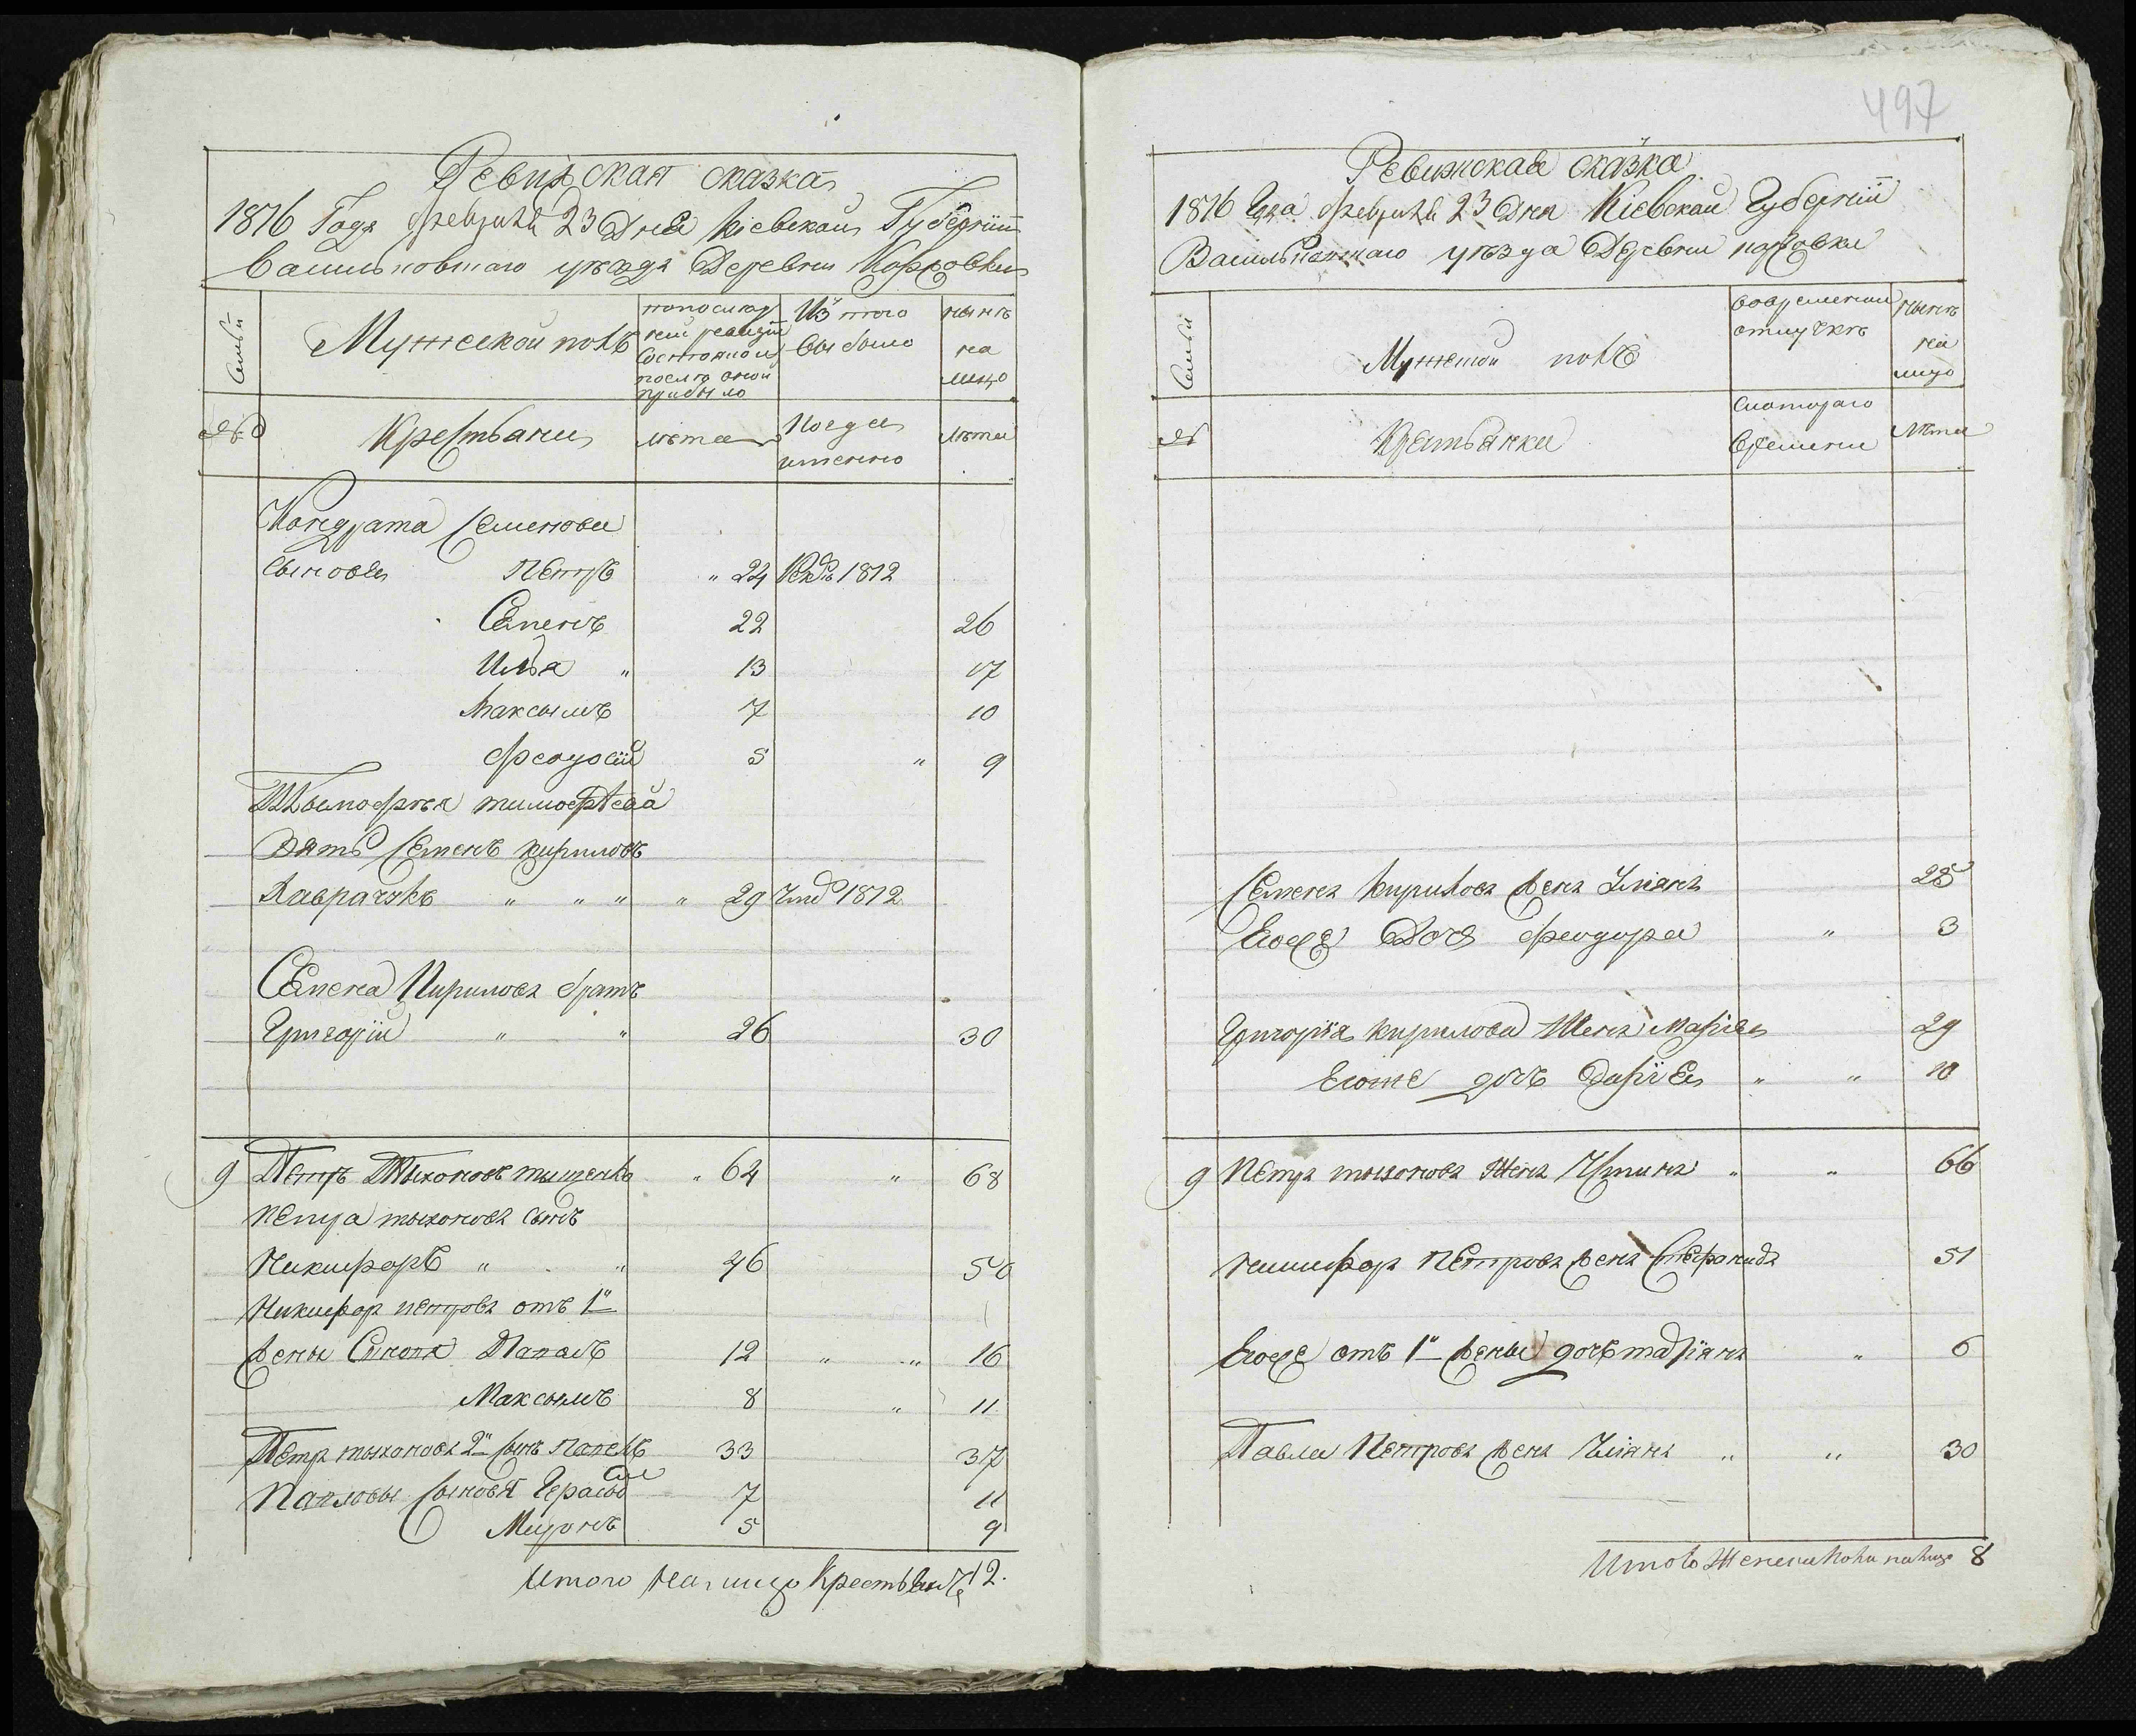 497
Ревижская сказка
1816 Года февраля 23 Дня Кіевской Губерніи
Васильковскаго уезда Деревни
Семьи
Мужеской полъ
попослед
ней ревизіи
состояло и
после оной
прибыло
Изтого
выбыло
ныне
на
лицо
№
Крестьяни
лета
Когда
именно
лета
Кондрата Семенова
сыновя Петръ " 24 Рекр 1812
Семенъ 22 26
Илья " 13 17
Максымъ 7 10
Феодосій 5 " 9
тимофеева
Зять Семенъ кириловъ
" " " " 29 1812
Семена Кирилова братъ
Григорій " " 26 30
9 Петръ Тыхоновъ тыщенко " 64 " 68
Петра тыхонова сынъ
Никифоръ " " 46 50
Никифора петрова отъ 1й
жены Сыновя Павелъ 12 " " 16
Максымъ 8 " 11
Петра тыхонова 2й сынъ павелъ 33 37
Павловы сыновя Герасим 7 11
Миронъ 5 9
Итого на лицо Крестьянъ 12.
Ревижская сказка
1816 Года февраля 23 Дня Кіевской Губерніи
Васильковскаго уезда Деревни
Семьи
Мужеской полъ
вовременной
отлучке
ныне
на
лицо
№
Крестьянки
Скотораго
времени
Лета
Семена Кирилова жена Уліяна 25
Егоже Дочь Феодора " 3
Григорія кирилова Жена Марія 29
Егоже дочъ Дарія " " 10
9 Петра тыхонова Жена Устина " " 66
Никифора Петрова жена Стефанида 51
Егоже отъ 1й жены дочъ Маріяна " 6
Павла Петрова жена Уліяна " " 30
Итого Женска пола налицо 8